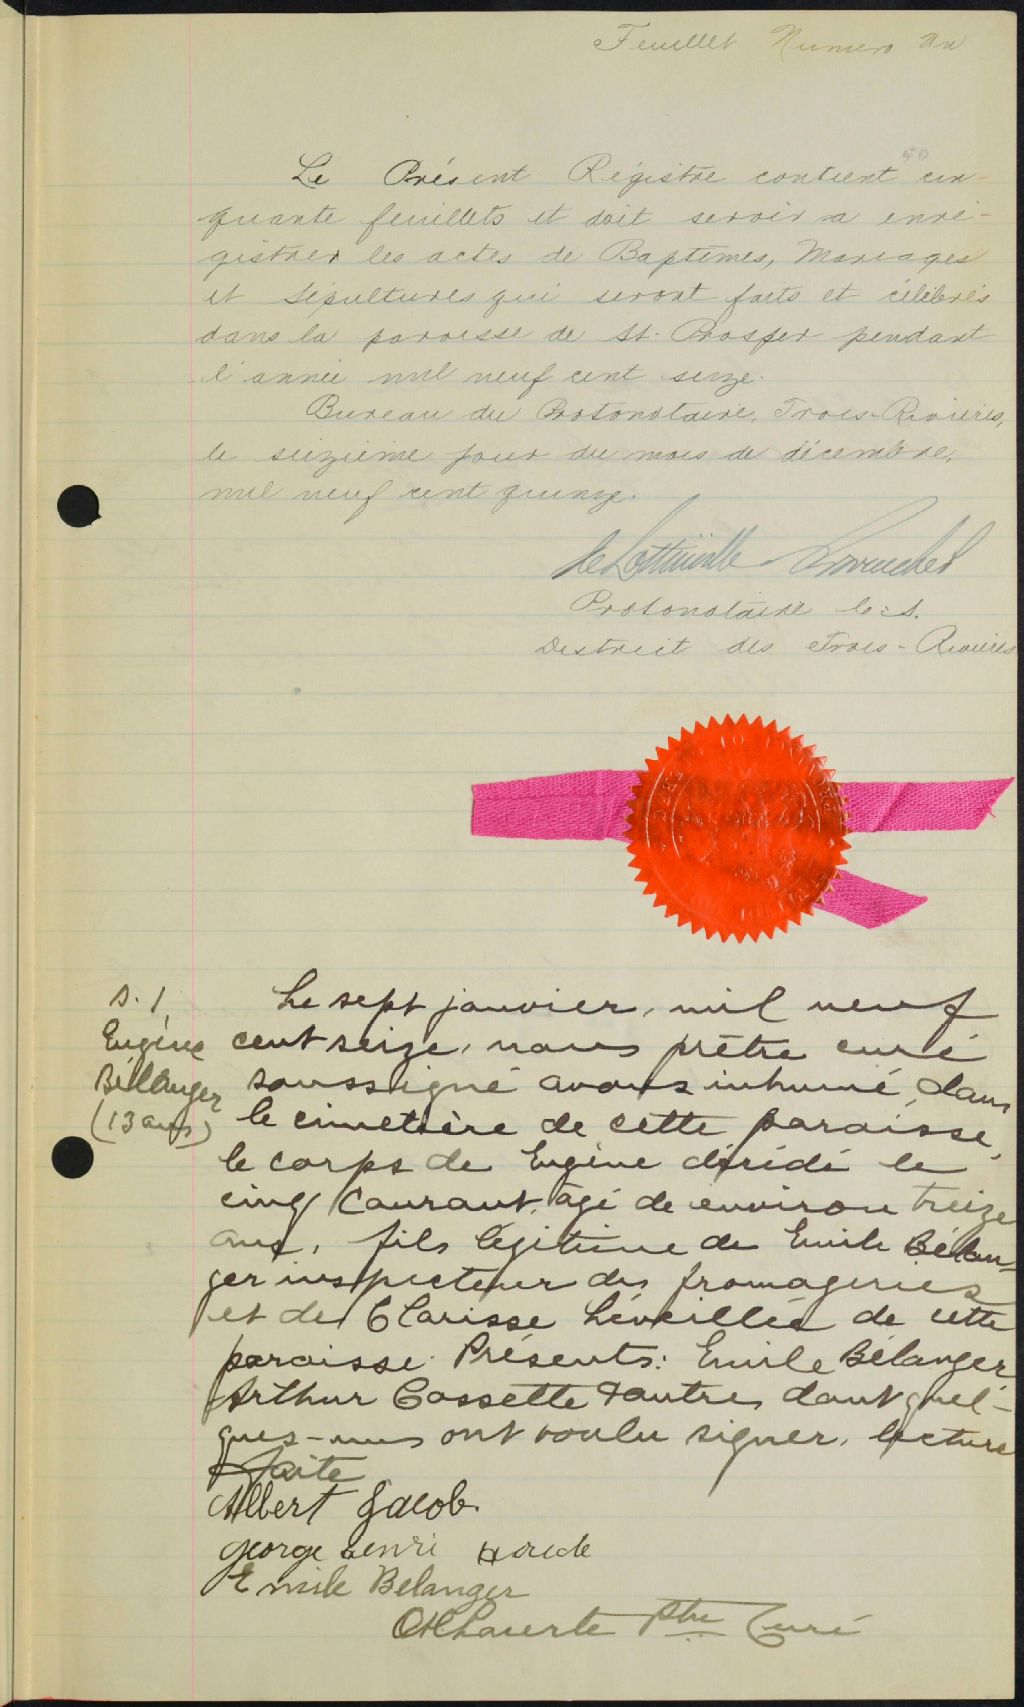 Feuillet Numero Un
50
Le Présent Régistre contient cin-
quante feuillets et doit servir a enré-
gistrer les actes de Baptêmes, Mariages
et Sépultures qui seront faits et célébrés
dans la paroisse de St-Prosper pendant
l'année mil neuf cent seize.
Bureau du Protonotaire, Trois-Rivières,
le seizième jour du mois de décembre,
mil neuf cent quinze.
Protonotaire C.S.
District des Trois-Rivières
S. 1
Eugène
Bélanger
(13 ans)
Le sept janvier, mil neuf
cent seize, nous prêtre curé
soussigné avons inhumé, dans
le cimetière de cette paroisse,
le corps de Eugène décédé le
cinq courant, âgé de environ treize
ans, fils légitime de Emile Bélan-
ger inspecteur des fromageries
et de Clarisse Léveillée de cette
paroisse. Présents: Emile Bélanger
Arthur Cossette & autres dont quel-
ques-uns ont voulu signer. lecture
faite
Albert Jacob
George henri
Emile Bélanger
Ptre Curé